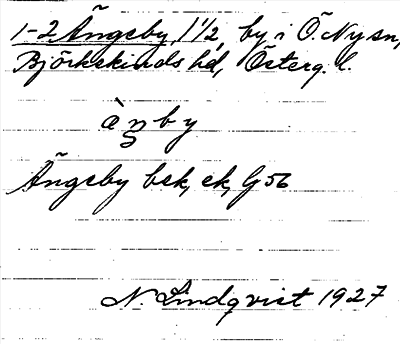 1-2 Ängeby, 1 1/2, by i Ö. Ny sn,
Björkekinds hd, Österg. l.
àŋby
Ängeby bek, ek, G 56
N. Lindqvist 1927